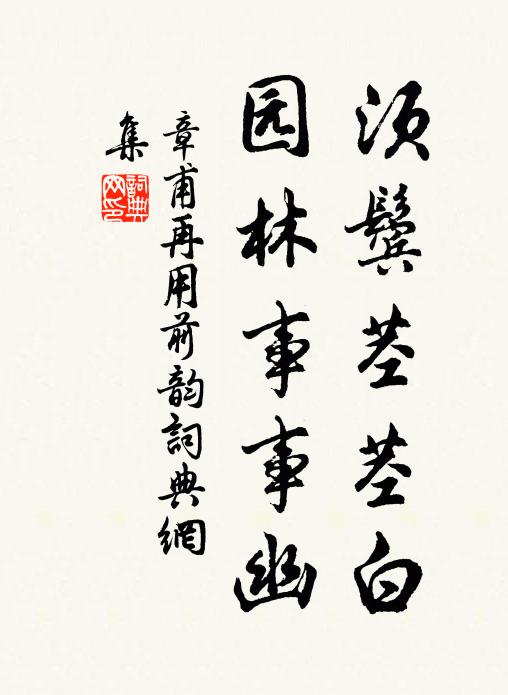 须鬓茎茎白
园林事事幽
章甫再用前韵詞典網
集
詞典网印